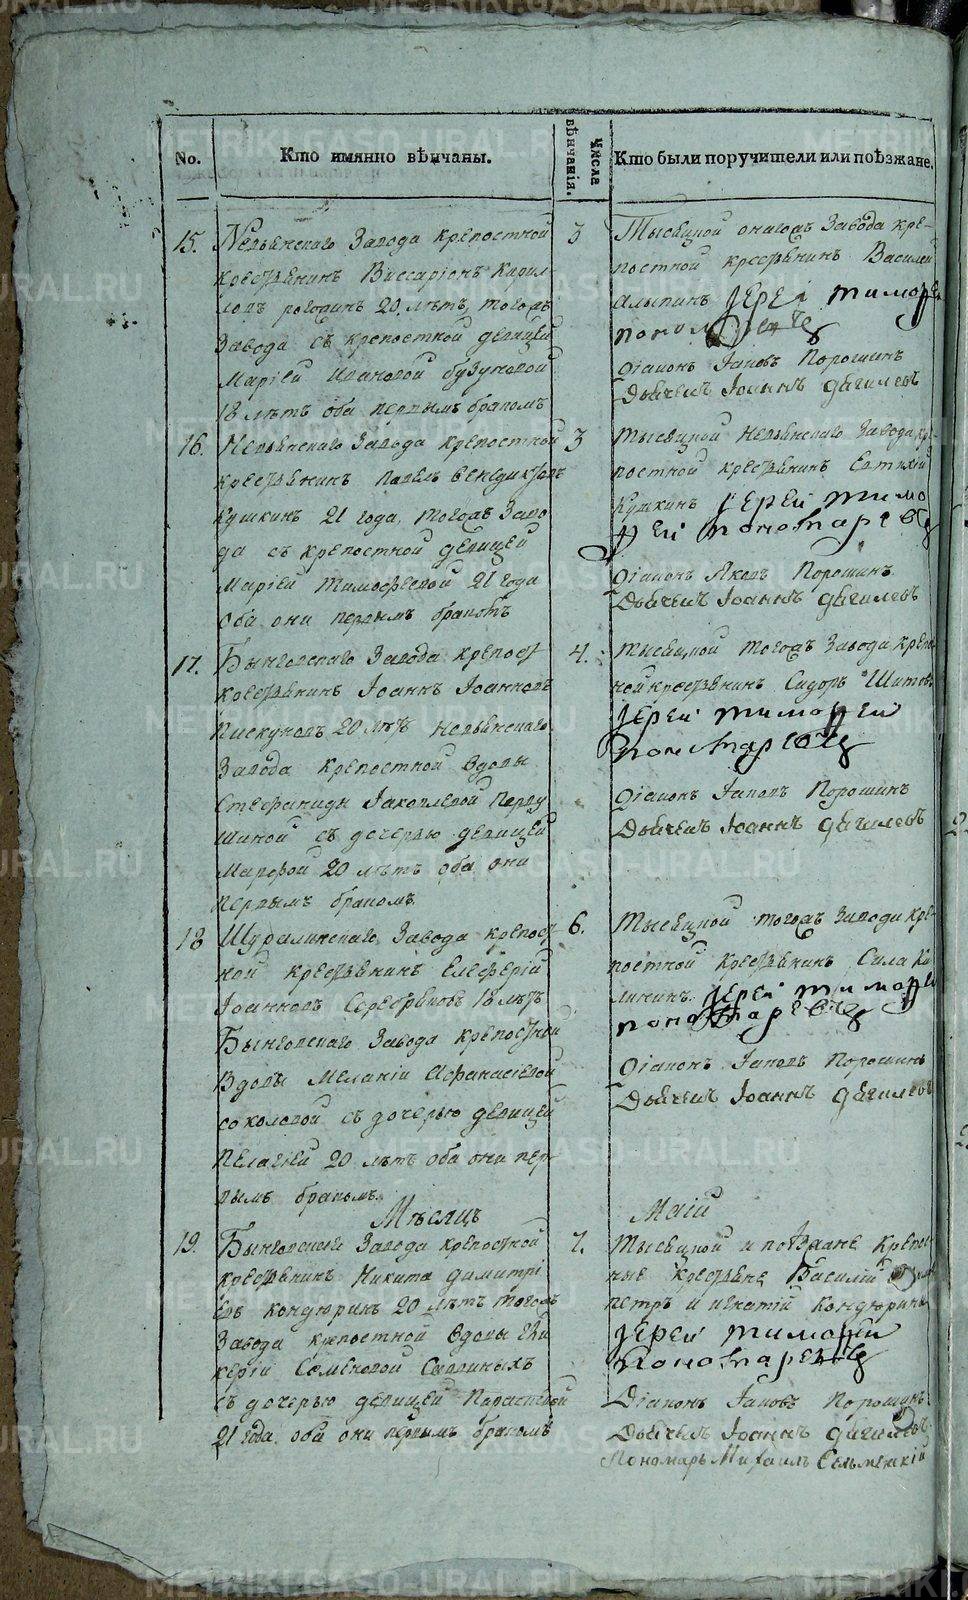 No.
Кто имянно вѣнчаны.
Числа вѣнчанія.
Кто были поручители или поѣзжане.
15.
Невьянскаго Завода крепостной
крестьянинъ Виссарiонъ Кирил-
ловъ 20 лѣтъ, тогожъ
Завода съ крепостной девицей
Марiей Ивановой
18 лѣтъ оба первымъ бракомъ
3
Тысецкой онагожъ Завода кре-
постной крестьянинъ Василей
Iерей Тимофей
Пономаревъ
Дiаконъ Iаковъ Порошинъ
Дьячекъ Iоаннъ Дягилевъ
16.
Невьянскаго Завода крепостной
крестьянинъ Павелъ Венедиктовъ
Кушкинъ 21 года, тогожъ Заво-
да съ крепостной девицей
Марiей Тимофеевой 21 года
оба они первымъ бракомъ
3
Тысецкой Невьянскаго Завода кре-
постной крестьянинъ Евтихiй
Кушкинъ Iерей Тимо
фей Пономаревъ
Дiаконъ Яковъ Порошинъ
Дьячекъ Iоаннъ Дягилевъ
17.
Быньговскаго Завода крепост
крестьянинъ Iоаннъ Iоанновъ
Пискуновъ 20 лѣтъ Невьянскаго
Завода крепостной вдовы
Стефаниды Iаковлевой Перву
шиной съ дочерью девицей
Марфой 20 лѣтъ оба они
первымъ бракомъ
4.
Тысецкой тогожъ Завода крепост
ной крестьянинъ Сидоръ Шитовъ
Iерей Тимофей
Пономаревъ
Дiаконъ Iаковъ Порошинъ
Дьячекъ Iоаннъ Дягилевъ
18
Шуралинскаго Завода крепост
ной крестьянинъ Елеферiй
Iоанновъ Серебряковъ 18 лѣтъ
Быньговскаго Завода крепостной
вдовы Меланiи Афанасiевой
соколовой съ дочерью девицей
Пелагiей 20 лѣтъ оба они пер
вымъ бракомъ
6.
Тысецкой тогожъ Завода кре-
постной крестьянинъ Сила Ка
лининъ Iерей Тимофей
Пономаревъ
Дiаконъ Iаковъ Порошинъ
Дьячекъ Iоаннъ Дягилевъ
Мѣсяцъ Маiй
19.
Быньговскаго Завода крепостной
крестьянинъ Никита Димитрi
евъ Кондюринъ 20 лѣтъ тогожъ
Завода крепостной вдовы Гли
керiи Семеновой
съ дочерью девицей Параскевой
21 года оба они первымъ бракомъ
7.
Тысецкой и поѣзжане крепост
ные крестьяне Василiй
петръ и игнатiй Кондюрины
Iерей Тимофей
Пономаревъ
Дiаконъ Iаковъ Порошинъ
Дьячекъ Iоаннъ Дягилевъ
Пономарь Михаилъ Сельменскiй
METRIKI.GASO-URAL.RU